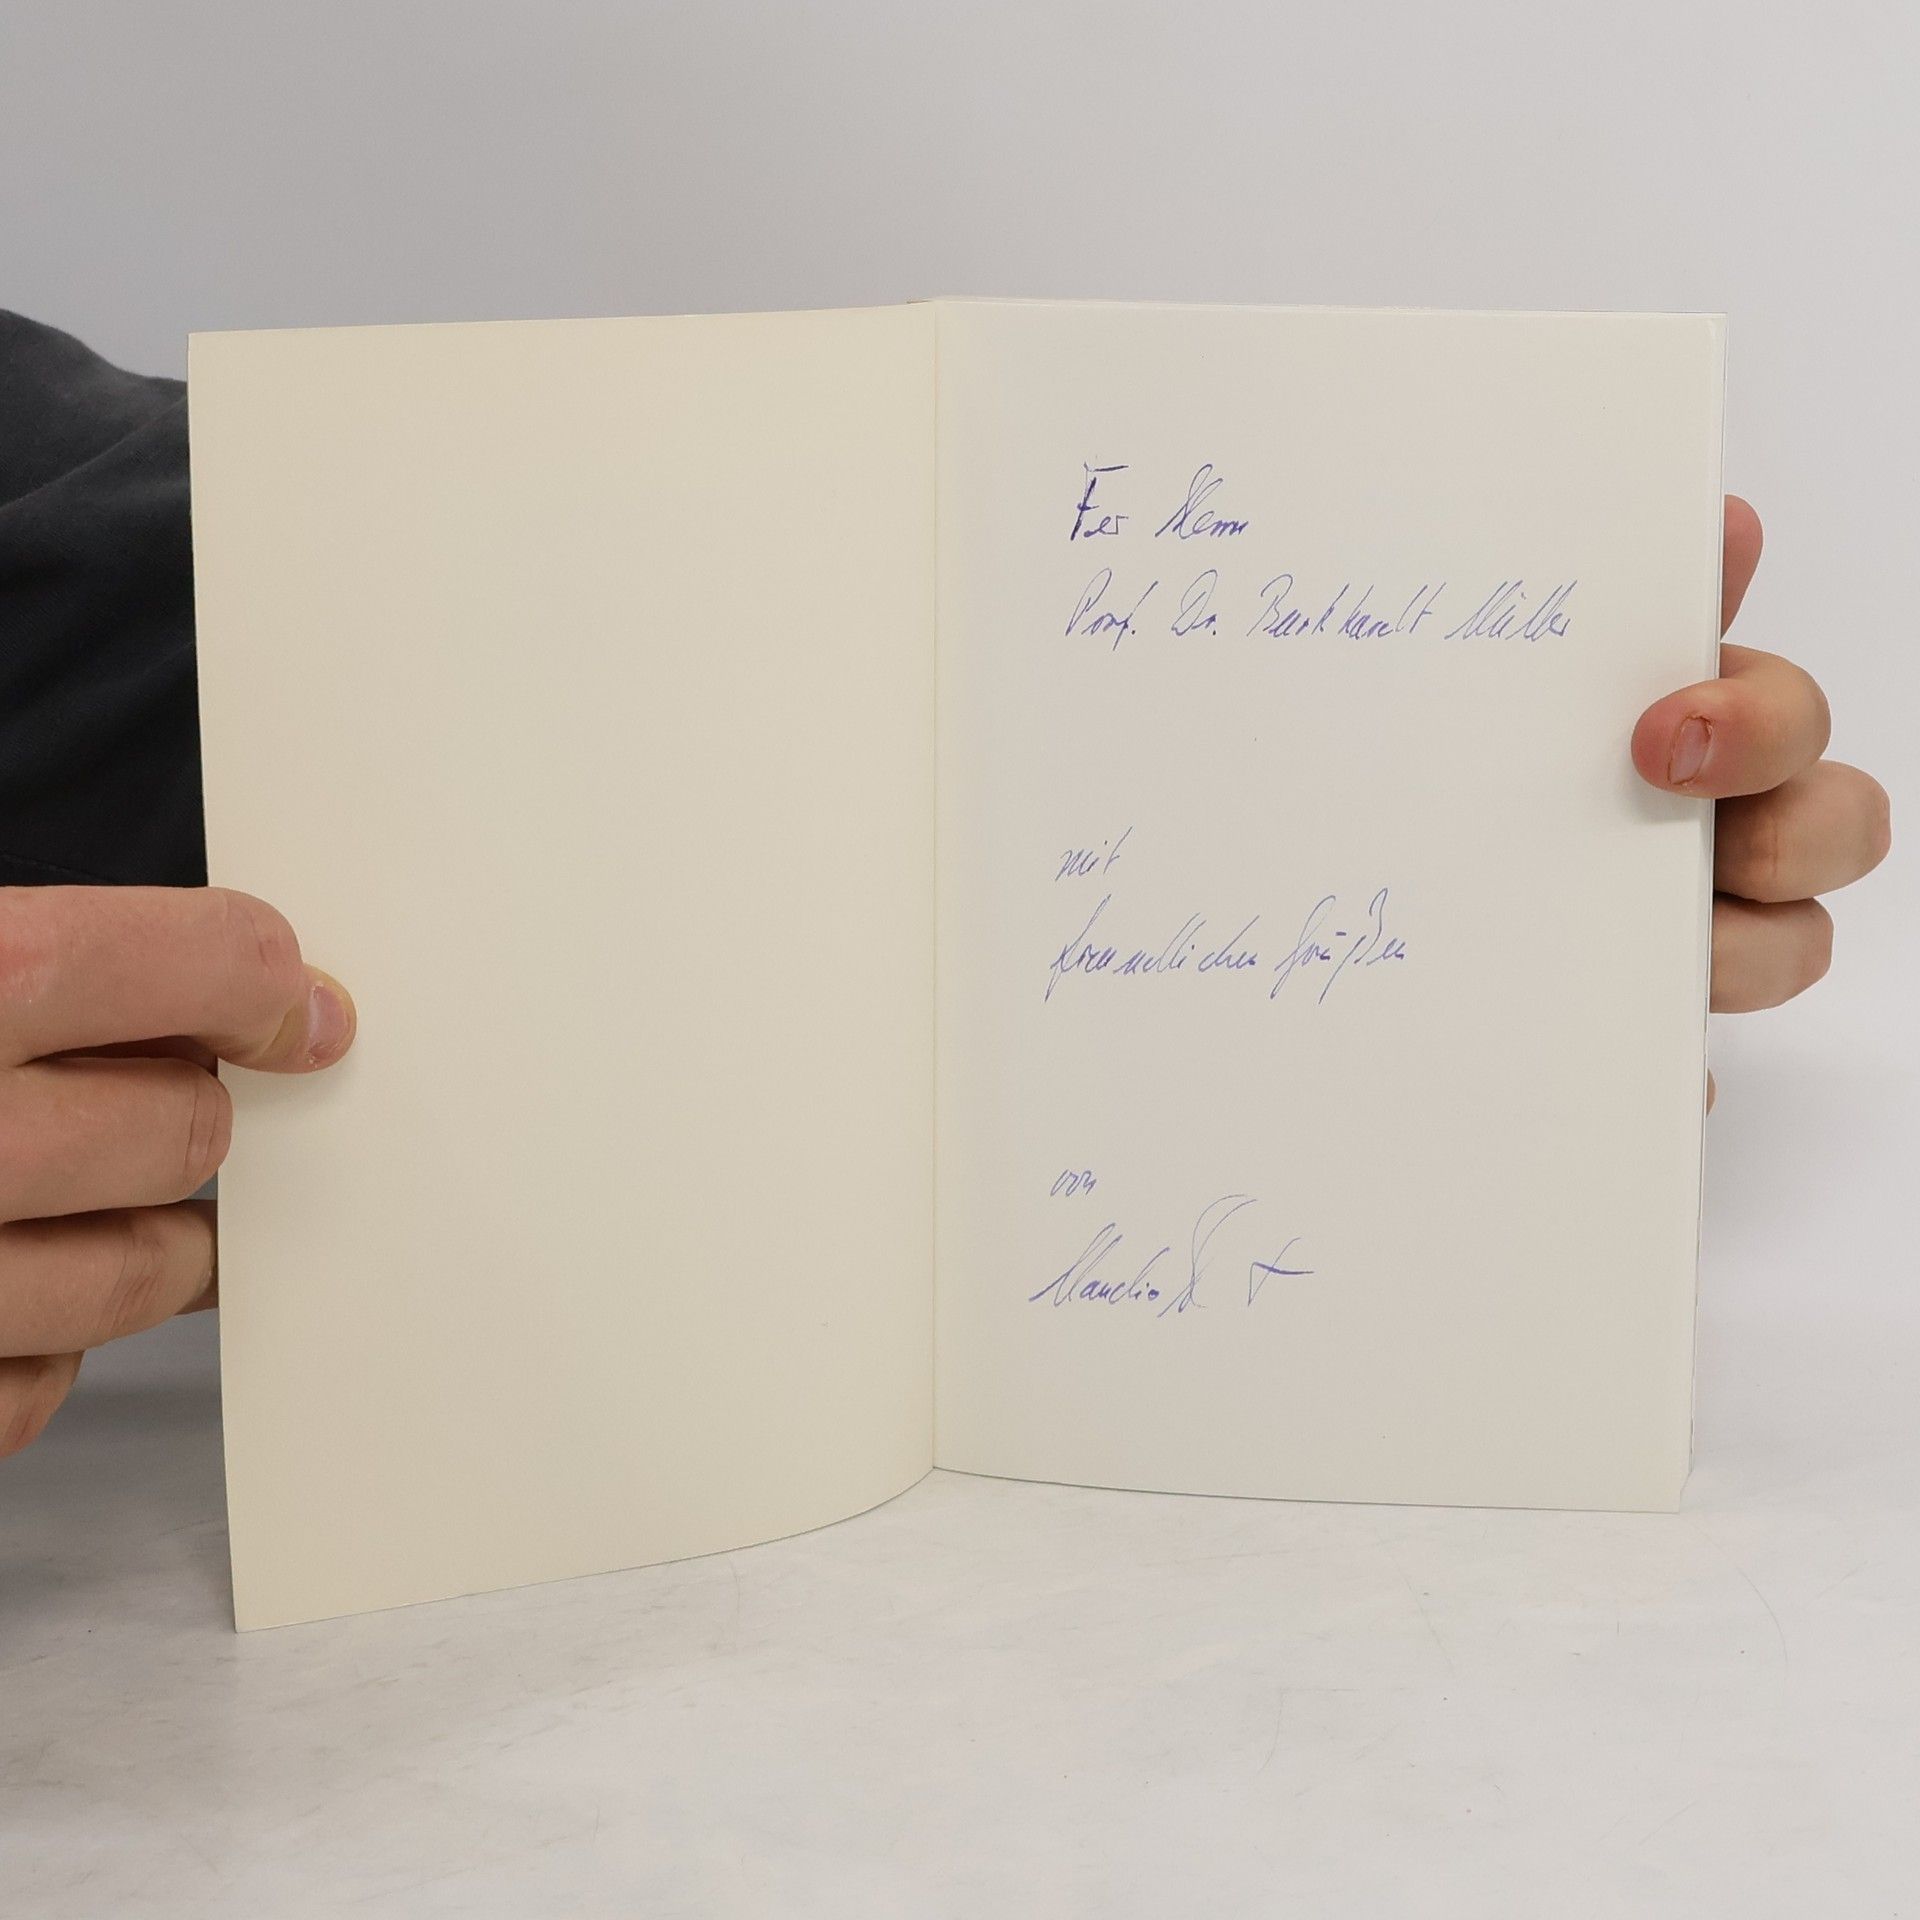 Für Herrn
Prof. Dr. Burkhardt Müller
mit
freundlichen Grüßen
von
Claudio